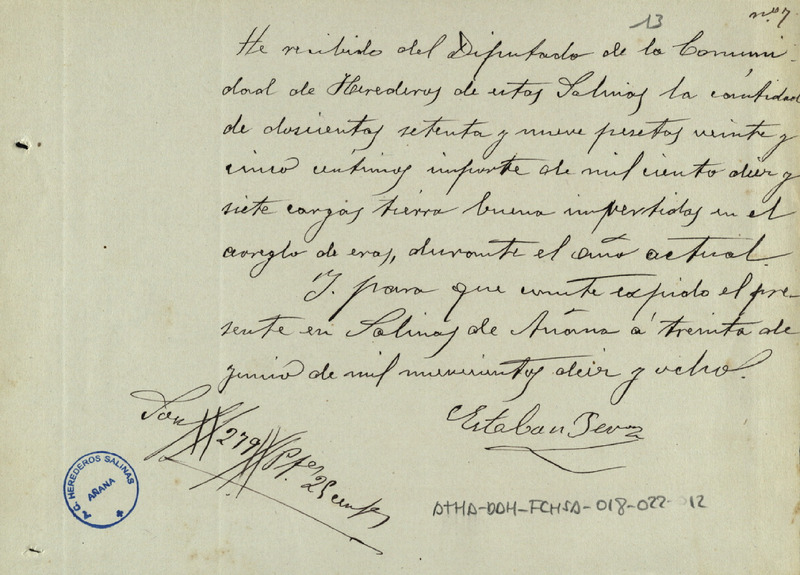 13
nº 7
He recibido del Diputado de la Comuni-
dad de Herederos de estas Salinas la cantidad
de doscientos setenta y nueve pesetas veinte y
cinco céntimos importe de mil ciento diez y
siete cargas tierra buena impertidas en el
arreglo de eras, durante el año actual.
Y para que conste expido el pre-
sente en Salinas de Añana á treinta de
junio de mil nuevecientos diez y ocho.
Esteban
Son 279 Ptas 25 cents
P. C. HEREDEROS SALINAS
AÑANA
ATHA-DAH-FCHSA-018-022-012